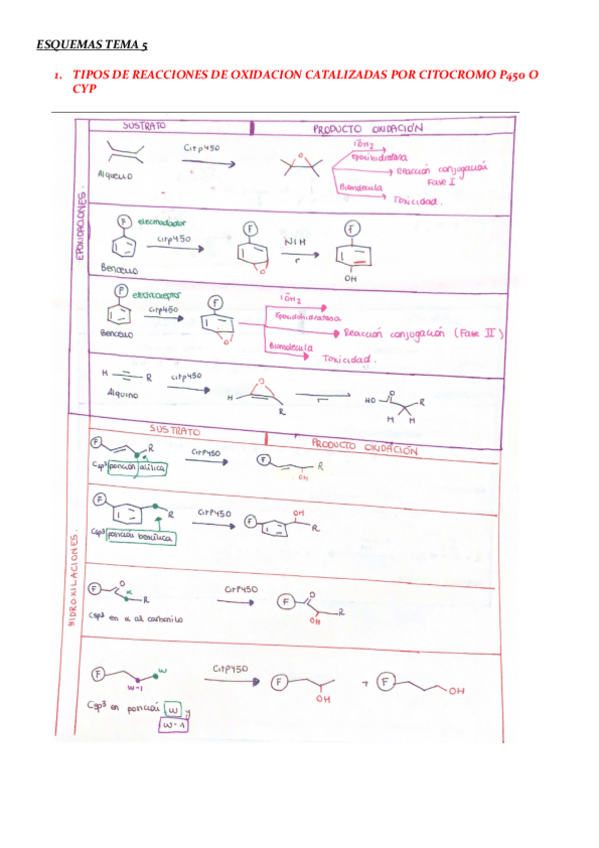 ESQUEMAS TEMA 5
1. TIPOS DE REACCIONES DE OXIDACION CATALIZADAS POR CITOCROMO P450 O
CYP
SUSTRATO
PRODUCTO OXIDACIÓN
EPOXIDACIONES.
Citp450
Alqueno
Epoxihidratasa
Reacción conjugación
Fase I
Biomolecula
Toxicidad.
F
electrodador
citp450
Benceno
F
NIH
r
F
OH
electroaceptor
citp450
Benceno
F
Epoxidohidratasa
Reacción conjugación (Fase II)
Biomolecula
Toxicidad.
H
R
citp450
Alquino
O
H
R
r
HO
O
R
H H
SUSTRATO
PRODUCTO OXIDACIÓN
HIDROXILACIONES.
F
R
Csp3 porción alílica
CitP450
F
R
OH
F
R
Csp3 porción bencílica
CitP450
F
OH
R
F
O
α
R
Csp3 en α al carbonilo
CitP450
F
O
R
OH
F
w
w-1
Csp3 en porción w y
w-1
CitP450
F
OH
+
F
OH